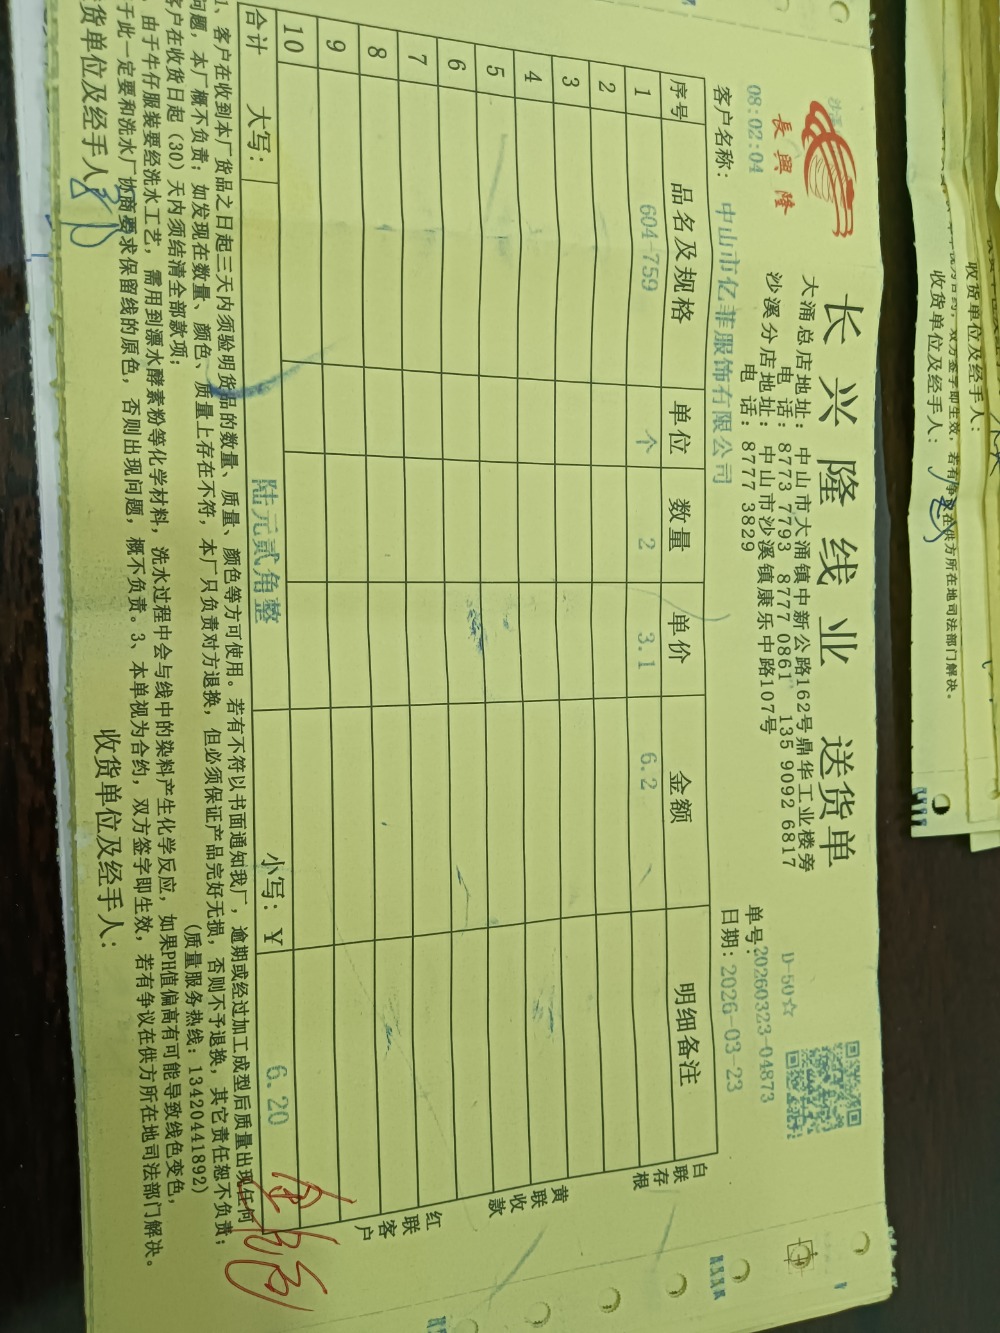 長興隆
08:02:04
长兴隆线业 送货单
大涌总店地址：中山市大涌镇中新公路162号鼎华工业楼旁
电 话：8773 7793 8777 0861 135 9092 6817
沙溪分店地址：中山市沙溪镇康乐中路107号
电 话：8777 3829
D-50☆
单号：20260323-04873
日期：2026-03-23
客户名称：中山市亿菲服饰有限公司
序号 品名及规格 单位 数量 单价 金额 明细备注
1 604-759 个 2 3.1 6.2
2
3
4
5
6
7
8
9
10
合计 大写：陆元贰角整 小写：￥ 6.20
白联存根
黄联收款
红联客户
1、客户在收到本厂货品之日起三天内须验明货品的数量、质量、颜色等方可使用。若有不符以书面通知我厂，逾期或经过加工成型后质量出现任何
问题，本厂概不负责；如发现在数量、颜色、质量上存在不符，本厂只负责对方退换，但必须保证产品完好无损，否则不予退换，其它责任恕不负责；
客户在收货日起（30）天内须结清全部款项； （质量服务热线：13420441892）
由于牛仔服装要经洗水工艺，需用到漂水酵素粉等化学材料，洗水过程中会与线中的染料产生化学反应，如果PH值偏高有可能导致线色变色，
于此一定要和洗水厂协商要求保留线的原色，否则出现问题，概不负责。3、本单视为合约，双方签字即生效，若有争议在供方所在地司法部门解决。
货单位及经手人 收货单位及经手人：
收货单位及经手人：
双方签字即生效，若有争议在供方所在地司法部门解决。
收货单位及经手人：